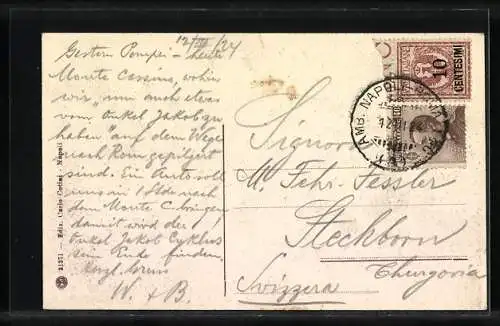 12/III/24
Gestern Pompei – heute
Monte Cassino, wohin
wir, "um auch etwas
vom Onkel Jakob zu
haben" auf dem Wege
nach Rom gepilgert
sind. Ein Auto soll
uns in 1 Stde nach
dem Monte C. bringen
damit wird der
Onkel Jakob Cyklus
sein Ende finden.
W. + B.
21371 — Ediz. Carlo Cotini - Napoli
10
CENTESIMI
AMB. NAPOLI
Signor
M. Fehr-Fessler
Steckborn
Thurgovia
Svizzera